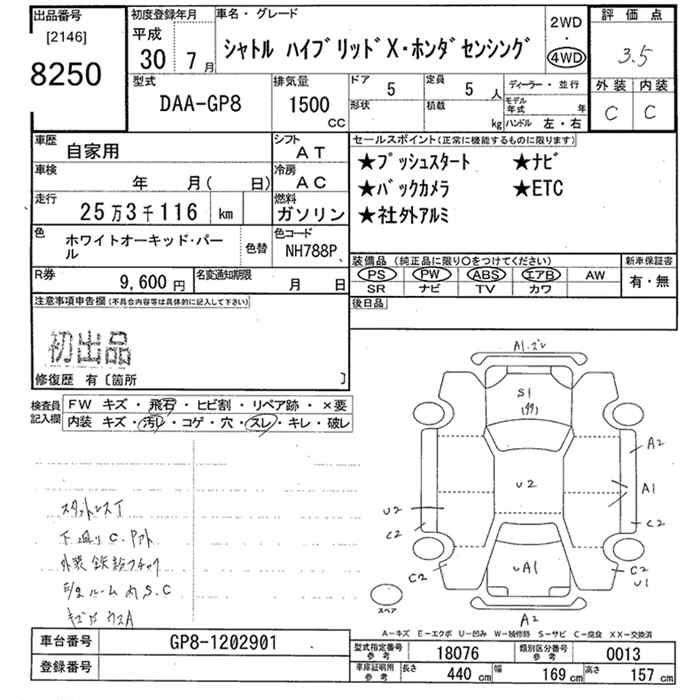 出品番号
[2146]
8250
初度登録年月
平成
30年 7月
車名・グレード
シャトル ハイブリッドX・ホンダセンシング
2WD
・
4WD
評価点
3.5
外装 内装
C C
型式
DAA-GP8
排気量
1500
CC
ドア 5
定員 5 人
形状
積載
kg
ディーラー・並行
モデル年式 年
ハンドル 左・右
車歴
自家用
シフト
AT
車検
年 月( 日)
冷房
AC
走行
25万3千116 km
燃料
ガソリン
色
ホワイトオーキッド・パール
色替
色コード
NH788P
R券
9,600円
名変通知期限
月 日
セールスポイント(正常に機能するものに限ります)
★プッシュスタート ★ナビ
★バックカメラ ★ETC
★社外アルミ
装備品 (純正品に限り○をつけてください)
新車保証書
PS PW ABS エアB AW
SR ナビ TV カワ
有・無
後日品
注意事項申告欄(不具合内容等は具体的に記入して下さい)
初出品
修復歴 有〔箇所 〕
検査員記入欄
FW キズ・飛石・ヒビ割・リペア跡・×要
内装 キズ・汚レ・コゲ・穴・スレ・キレ・破レ
下廻りC.
A1.ズレ
S1
U2
A2
A1
U2
C2
C2
C2
UA1
C2
U1
A2
スペア
A－キズ E－エクボ U－凹み W－補修跡 S－サビ C－腐食 XX－交換済
車台番号
GP8-1202901
登録番号
型式指定番号 参考
18076
類別区分番号 参考
0013
車庫証明用 参考
長さ 440 cm
幅 169 cm
高さ 157 cm